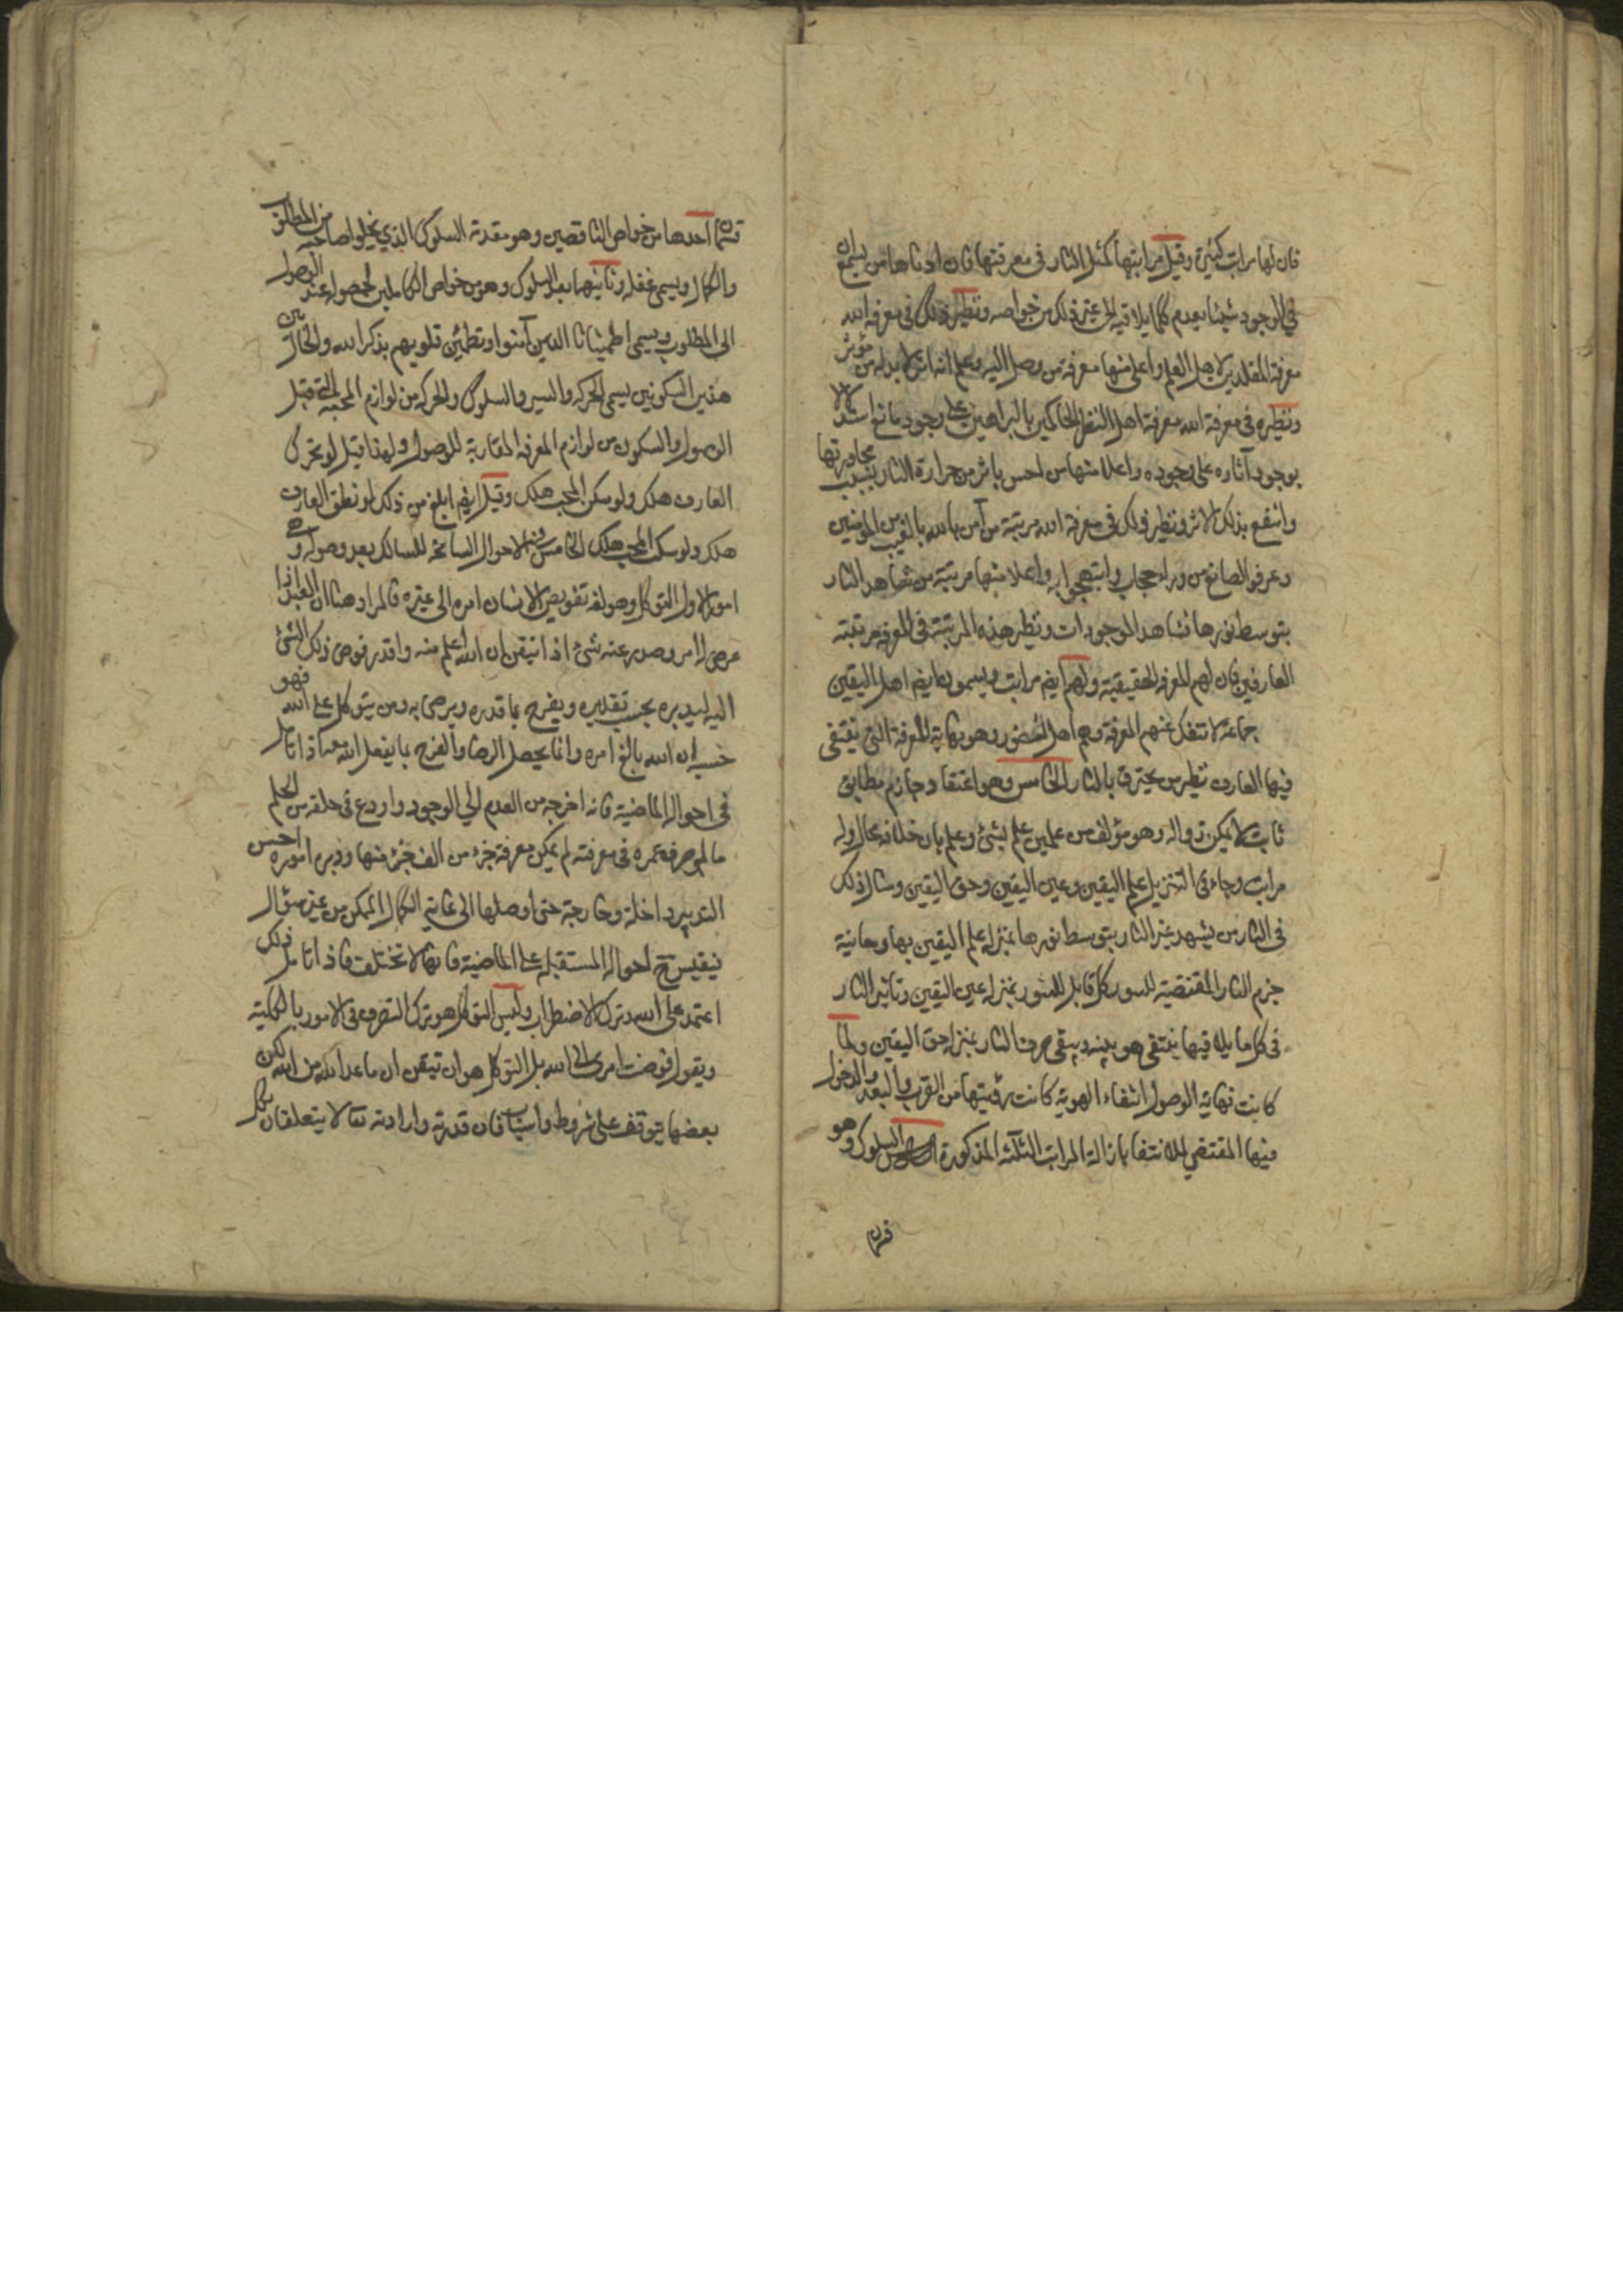 فان لها مراتب كثيرة وقيل مراتبها كمثل النار في معرفتها فان ادناها من يسمع ان
في الوجود شيئا يعدم كلما يلاقيه الى غير ذلك من خواصه ونظير ذلك في معرفة الله
معرفة المقلدين لاهل العلم واعلى منها معرفة من وصل اليه وعلم انه اثر لابد له من مؤثر
ونظيره في معرفة الله معرفة اهل النظر الحاكمين بالبراهين على وجود صانع استدلالا
بوجود آثاره على وجوده واعلا منها من احس باثر من حرارة النار بسبب مجاورتها
وانتفع بذلك الاثر ونظير ذلك في معرفة الله مرتبة من آمن بالله بالغيب من المؤمنين
وعرفوا الصانع من وراء حجاب وابتهجوا به واعلا منها مرتبة من شاهد النار
بتوسط نورها فشاهد الموجودات ونظير هذه المرتبة في المعرفة مرتبة
العارفين فان لهم المعرفة الحقيقية ولهم ايضا مراتب ويسمون ايضا اهل اليقين
جماعة لا تنفك عنهم المعرفة وهم اهل الحضور وهو نهاية المعرفة التي ينتفي
فيها العارف نظير من يحترق بالنار الخامس وهو اعتقاد جازم مطابق
ثابت لا يمكن زواله وهو مؤلف من علمين علم بشئ وعلم بان خلافه محال وله
مراتب وجاء في التنزيل علم اليقين وعين اليقين وحق اليقين ومثال ذلك
في النار من يشهد عين النار بتوسط نورها بمنزلة علم اليقين بها ومعاينة
جرم النار المقتضية للنور كل قابل للنور بمنزلة عين اليقين وتاثير النار
في كل ما يلاقيها ينتفي هويته ويبقى صرف النار بمنزلة حق اليقين ولما
كانت نهاية الوصول انتفاء الهوية كانت رؤيتها من القرب والبعد والدخول
فيها المقتضي للانتفا بازالة المراتب الثلثة المذكورة السلوك وهو
قسمان
قسمان احدها من خواص الناقصين وهو مقدمة السلوك الذي يخلوا صاحبه من المطلوب
والكمال ويسمى غفلة وثانيها بعد السلوك وهو من خواص الكاملين الحصوله عند الوصول
الى المطلوب ويسمى اطمينانا الذين آمنوا وتطمئن قلوبهم بذكر الله والحال بين
هذين السكونين يسمى الحركه والسير والسلوك والحركه من لوازم المحبة التي قبل
الوصول والسكون من لوازم المعرفه المقارنة للوصول ولهذا قيل لو تحرك
العارف هلك ولو سكن المحب هلك وقيل ايضا ابلغ من ذلك لو نطق العارف
هلك ولو سكت المحب هلك الخامس الاحوال السانحة للسالك بعد وصوله وهي
امور الاول التوكل وهو لغة تفويض الانسان امره الى غيره فالمراد هنا ان العبد اذا
عرض له امر وصدر عنه شئ اذا تيقن ان الله اعلم منه واقدر فوض ذلك الشئ
اليه ليدبره بحسب تقديره ويفرح بما قدره ويرضى به ومن يتوكل على الله فهو
حسبه ان الله بالغ امره وانما يحصل الرضا والفرح بما يفعل الله معه اذا تامل
في احواله الماضية فانه اخرجه من العدم الى الوجود واودع في خلقه من الحكم
ما لو صرف عمره في معرفته لم يمكن معرفة جزء من الف جزء منها ودبر اموره احسن
التدبير داخلة وخارجة حتى اوصلها الى غاية الكمال الممكن من غير سؤال
فيقيس ح احواله المستقبلة على الماضية فانها لا تختلف فاذا تامل ذلك
اعتمد على الله وترك الاضطراب وليس التوكل هو ترك التصرف في الامور بالكلية
ويقول فوضت امرى الى الله بل التوكل هو ان تيقن ان ما عدا الله من الله لكن
بعضها يتوقف على شروط واسباب فان قدرته وارادته تعا لا يتعلقان بكل